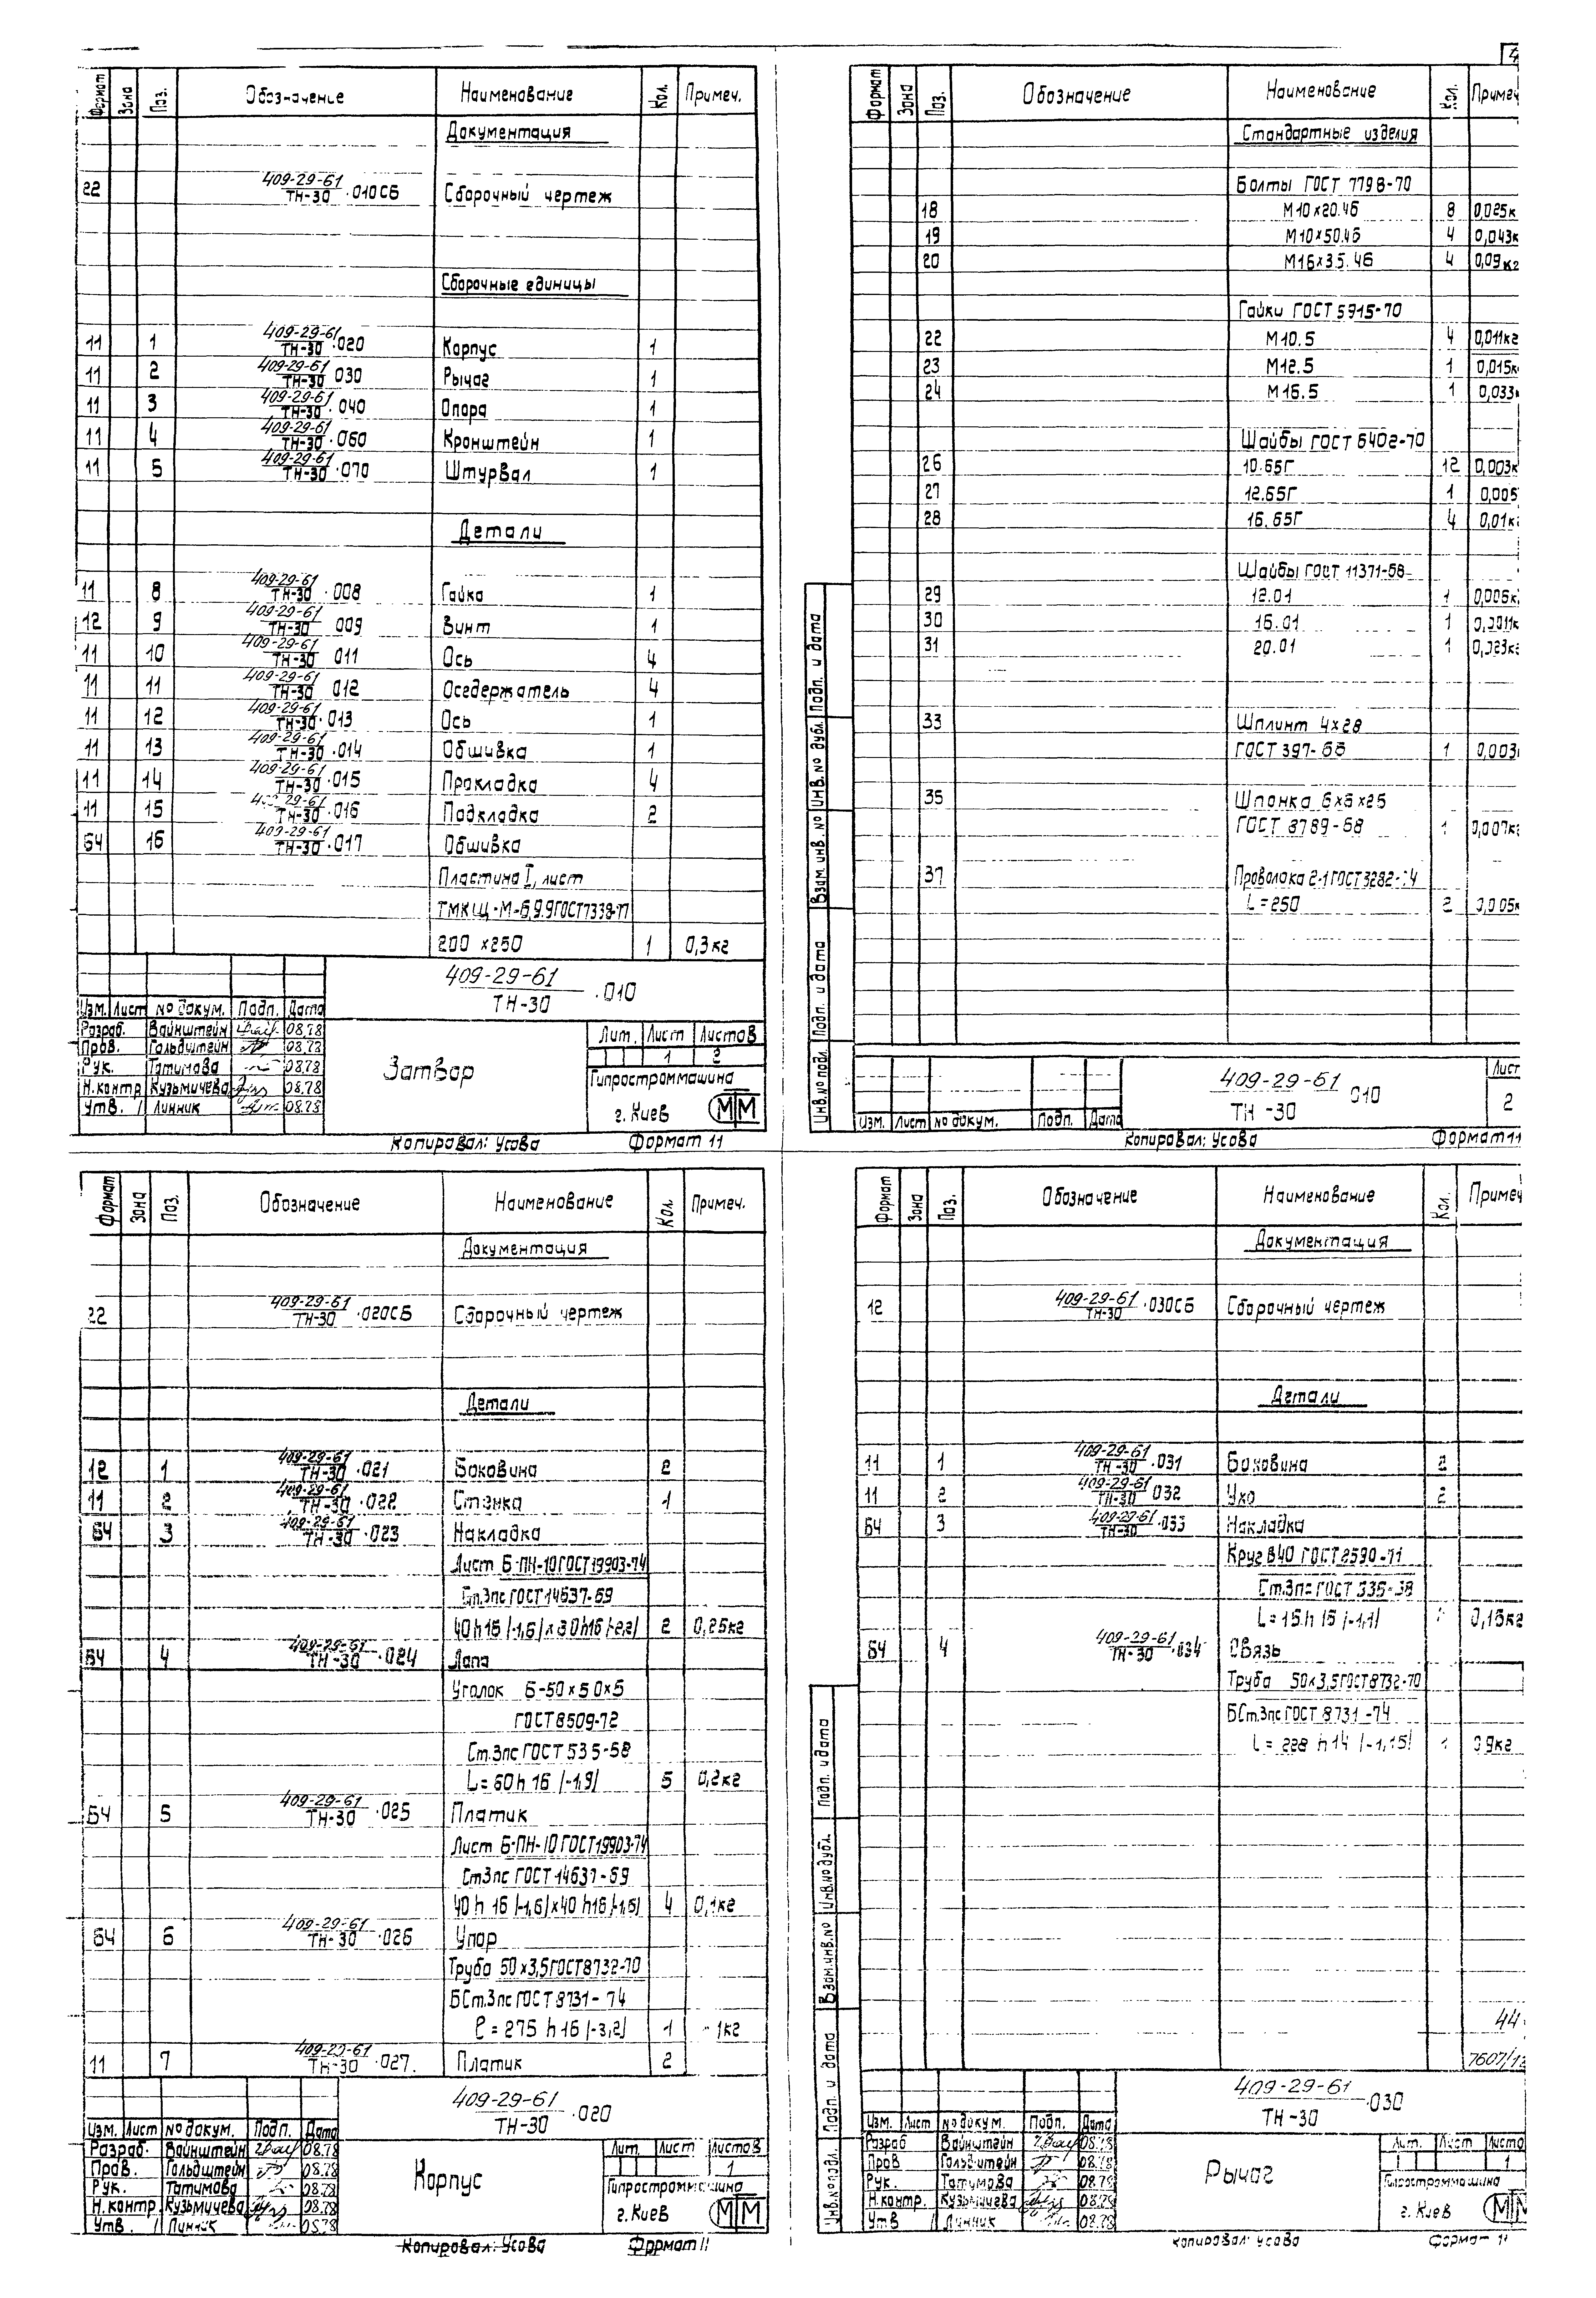 4
Формат Зона Поз. Обозначение Наименование Кол. Примеч.
Документация
22 409-29-61/ТН-30 ·010СБ Сборочный чертеж
Сборочные единицы
11 1 409-29-61/ТН-30 ·020 Корпус 1
11 2 409-29-61/ТН-30 030 Рычаг 1
11 3 409-29-61/ТН-30 ·040 Опора 1
11 4 409-29-61/ТН-30 ·060 Кронштейн 1
11 5 409-29-61/ТН-30 ·070 Штурвал 1
Детали
11 8 409-29-61/ТН-30 ·008 Гайка 1
12 9 409-29-61/ТН-30 009 Винт 1
11 10 409-29-61/ТН-30 011 Ось 4
11 11 409-29-61/ТН-30 012 Оседержатель 4
11 12 409-29-61/ТН-30 ·013 Ось 1
11 13 409-29-61/ТН-30 ·014 Обшивка 1
11 14 409-29-61/ТН-30 ·015 Прокладка 4
11 15 409-29-61/ТН-30 ·016 Подкладка 2
БЧ 16 409-29-61/ТН-30 ·017 Обшивка
Пластина I, лист
ТМКЩ-М-6,9.9ГОСТ7338-77
200 х250 1 0,3кг
409-29-61/ТН-30 ·010
Изм. Лист № докум. Подп. Дата
Разраб. Вайнштейн 08.78
Пров. Гольдштейн 08.78
Рук. Татимова 08.78
Н.контр Кузьмичева 08.78
Утв. Линник 08.78
Затвор
Лит. Лист Листов
1 2
Гипростроммашина
г. Киев
ММ
Копировал: Усова Формат 11
Формат Зона Поз. Обозначение Наименование Кол. Примеч
Стандартные изделия
Болты ГОСТ 7798-70
18 М10х20.46 8 0,025к
19 М10х50.46 4 0,043к
20 М16х35.46 4 0,09кг
Гайки ГОСТ 5915-70
22 М10.5 4 0,011кг
23 М12.5 1 0,015к
24 М16.5 1 0,033
Шайбы ГОСТ 6402-70
26 10.65Г 12 0,003к
27 12.65Г 1 0,005
28 16.65Г 4 0,01кг
Шайбы ГОСТ 11371-68
29 12.01 1 0,006к
30 16.01 1 0,0011к
31 20.01 1 0,023кг
33 Шплинт 4х28
ГОСТ 397-66 1 0,003
35 Шпонка 6х6х25
ГОСТ 8789-68 1 0,007кг
37 Проволока 2-1ГОСТ3282-74
L=250 2 0,005к
Инв.№ подл. Подп. и дата Взам. инв. № Инв. № дубл. Подп. и дата
Изм. Лист № докум. Подп. Дата
409-29-61/ТН-30 010
Лист
2
Копировал: Усова Формат 11
Формат Зона Поз. Обозначение Наименование Кол. Примеч.
Документация
22 409-29-61/ТН-30 ·020СБ Сборочный чертеж
Детали
12 1 409-29-61/ТН-30 ·021 Боковина 2
11 2 409-29-61/ТН-30 ·022 Стенка 1
БЧ 3 409-29-61/ТН-30 ·023 Накладка
Лист Б-ПН-10ГОСТ19903-74
Ст.3пс ГОСТ14637-69
40h16 /-1,6/ х 30h16 /-2,2/ 2 0,25кг
БЧ 4 409-29-61/ТН-30 ·024 Лапа
Уголок Б-50х50х5
ГОСТ8509-72
Ст.3пс ГОСТ 535-58
L=60h 16 /-1,9/ 5 0,2кг
БЧ 5 409-29-61/ТН-30 ·025 Платик
Лист Б-ПН-10 ГОСТ19903-74
Ст3пс ГОСТ 14637-69
40 h 16 /-1,6/х40 h16 /-1,6/ 4 0,1кг
БЧ 6 409-29-61/ТН-30 ·026 Упор
Труба 50х3,5ГОСТ8732-70
БСт.3пс ГОСТ 8731-74
ℓ=275 h16 /-3,2/ 1 1кг
11 7 409-29-61/ТН-30 ·027. Платик 2
409-29-61/ТН-30 ·020
Изм. Лист № докум. Подп. Дата
Разраб. Вайнштейн 08.78
Пров. Гольдштейн 08.78
Рук. Татимова 08.78
Н.контр. Кузьмичева 08.78
Утв. Линник 08.78
Корпус
Лит. Лист Листов
1
Гипростроммашина
г. Киев
ММ
Копировал: Усова Формат 11
Формат Зона Поз. Обозначение Наименование Кол. Примеч
Документация
12 409-29-61/ТН-30 ·030СБ Сборочный чертеж
Детали
11 1 409-29-61/ТН-30 ·031 Боковина 2
11 2 409-29-61/ТН-30 032 Ухо 2
БЧ 3 409-29-61/ТН-30 ·033 Накладка
Круг В40 ГОСТ2590-71
L=15 h 15 /-1,1/ 0,15кг
БЧ 4 409-29-61/ТН-30 ·034 Связь
Труба 50х3,5ГОСТ8732-70
БСт.3пс ГОСТ 8731-74
L=228 h14 /-1,15/ 1 0,9кг
44
7607/12
Инв.№ подл. Подп. и дата Взам.инв.№ Инв.№ дубл. Подп. и дата
409-29-61/ТН-30 ·030
Изм. Лист № докум. Подп. Дата
Разраб Вайнштейн 08.78
Пров Гольдштейн 08.78
Рук. Татимова 08.78
Н.контр. Кузьмичева 08.78
Утв Линник 08.78
Рычаг
Лит. Лист Листо
1
Гипростроммашина
г. Киев
ММ
Копировал: Усова Формат 11